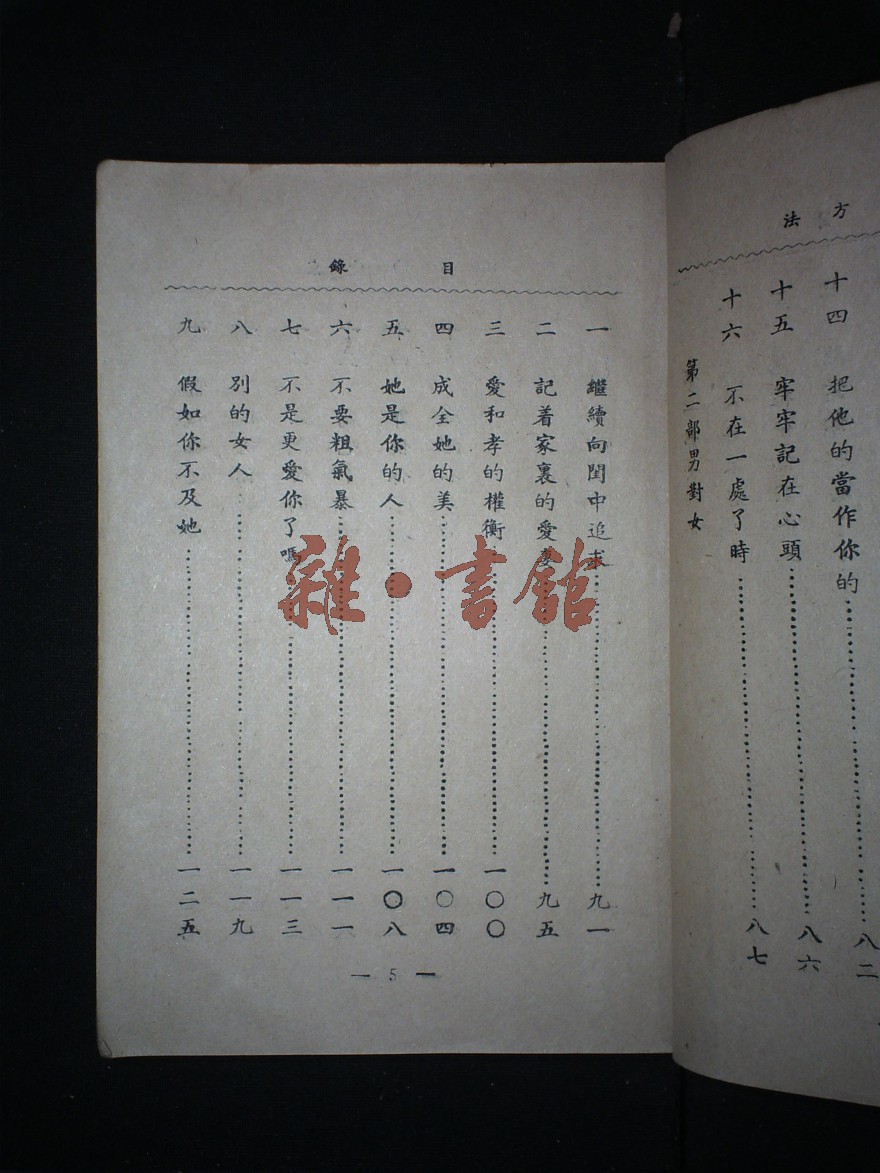 方法
十四 把他的當作你的……八二
十五 牢牢記在心頭……八六
十六 不在一處了時……八七
第二部男對女
目錄
一 繼續向閨中追求……九一
二 記着家裏的愛妻……九五
三 愛和孝的權衡……一〇〇
四 成全她的美……一〇四
五 她是你的人……一〇八
六 不要粗氣暴……一一一
七 不是更愛你了嗎……一一三
八 別的女人……一一九
九 假如你不及她……一二五
— 5 —
雜·書館